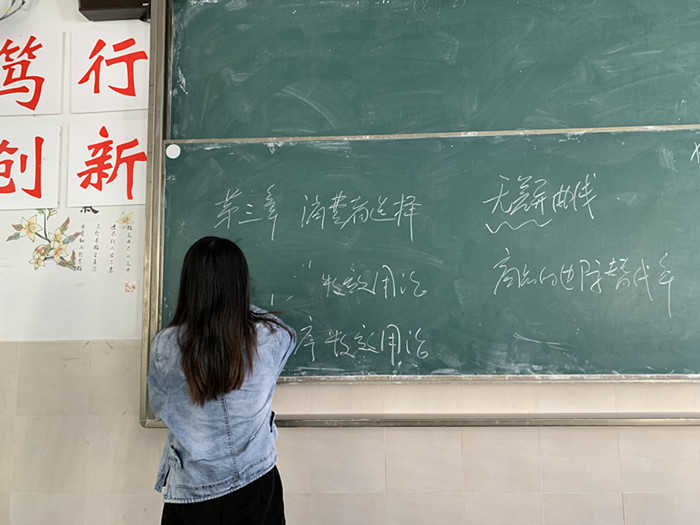 笃行
创新
第三章 消费者选择
数效用论
序数效用论
无差异曲线
商品的边际替代率